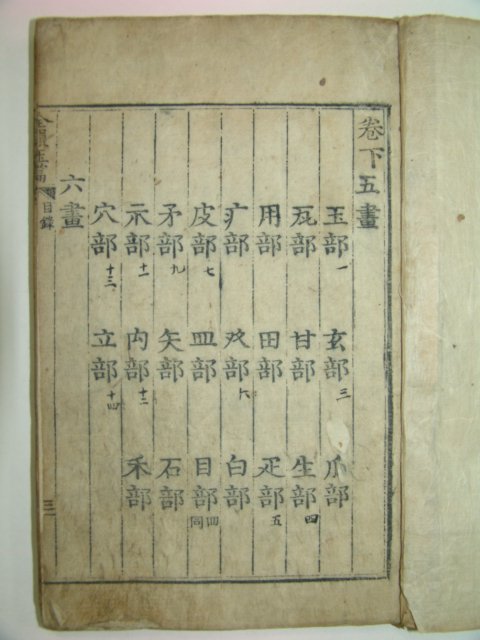 卷下五畫
玉部一 玄部三 瓜部
瓦部 甘部 生部四
用部 田部 疋部五
疒部 癶部六 白部
皮部七 皿部 目部罒同
矛部九 矢部 石部
示部十一 禸部十二 禾部
穴部十三 立部十四
六畫
全韻玉篇 目錄 三